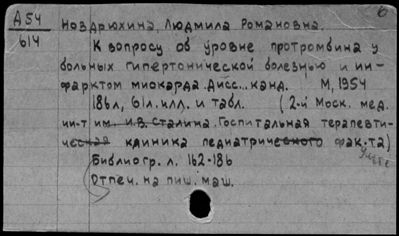 6
А54 Ноздрюхина, Людмила Романовна.
614
К вопросу об уровне протромбина у
больных гипертонической болезнью и ин-
фарктом миокарда. Дисс... канд. М, 1954
186л, 61л.илл. и табл. (2-й Моск. мед.
ин-т им. И.В. Сталина. Госпитальная терапевти-
ческая клиника педиатрического фак-та)
Библиогр. л. 162-186
Отпеч. на пиш. маш.